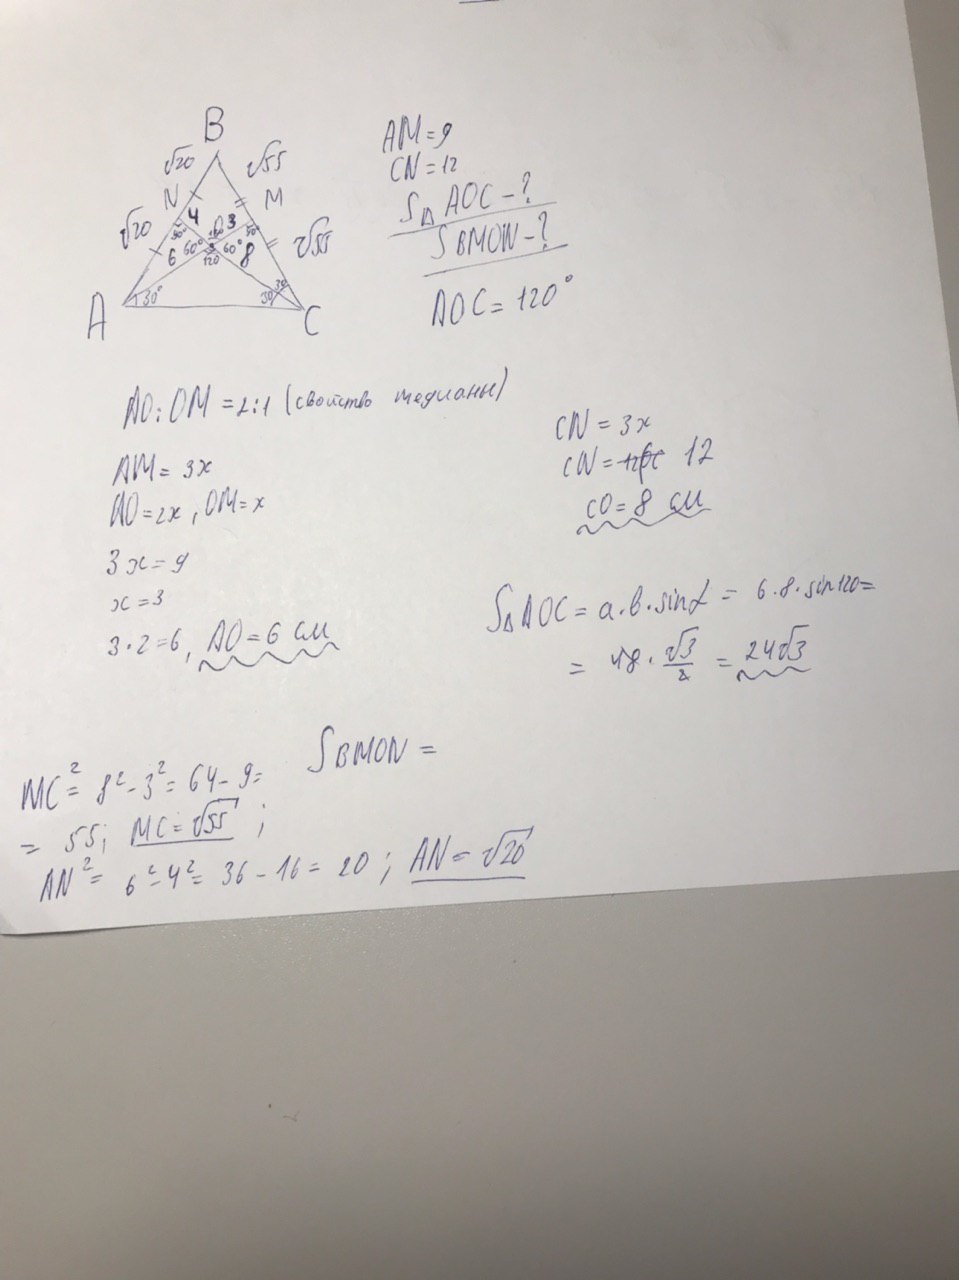 B
√20
√55
N
M
√20
4
3
√55
90°
90°
6
60°
60°
8
120
A
30°
30
30
C
AM=9
CN=12
S△AOC-?
SBMON-?
AOC=120°
AO:OM=2:1 (свойство медианы)
AM=3x
AO=2x, OM=x
3x=9
x=3
3·2=6, AO=6 см
CN=3x
CN= 12
CO=8 см
S△AOC=a·b·sinα = 6·8·sin120=
= 48·√3/2 = 24√3
SBMON =
MC²= 8²-3²= 64-9=
= 55; MC=√55 ;
AN²= 6²-4²= 36-16=20; AN=√20